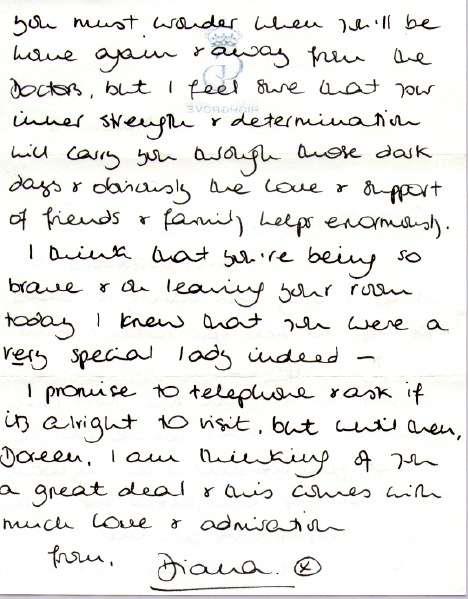 you must wonder when you'll be
home again & away from the
Doctors, but I feel sure that your
inner strength & determination
will carry you through those dark
days & obviously the love & support
of friends & family helps enormously.
I think that you're being so
brave & on leaving your room
today I knew that you were a
very special lady indeed —
I promise to telephone & ask if
its alright to visit, but until then,
Doreen, I am thinking of you
a great deal & this comes with
much love & admiration
from,
Diana. x